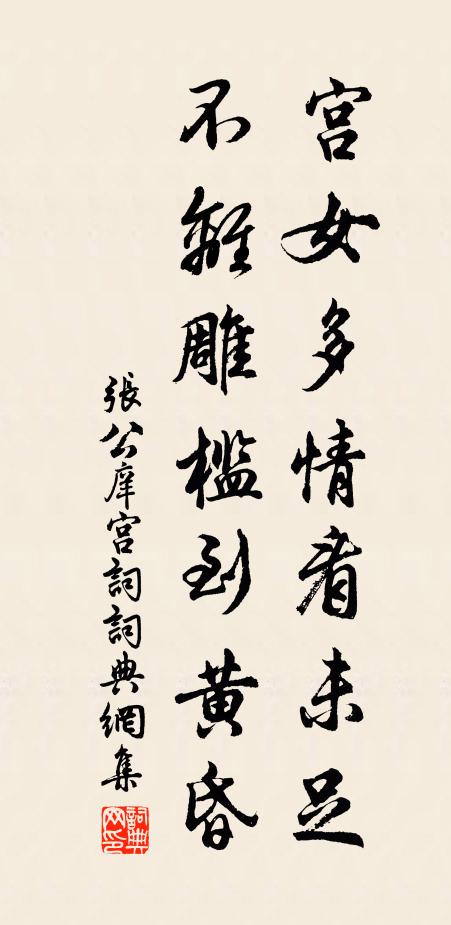 宫女多情看未足
不離雕檻到黄昏
張公庠宫詞詞典網集
詞典網印